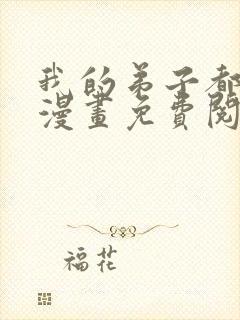 我的弟子都
漫畫免費閱
福花